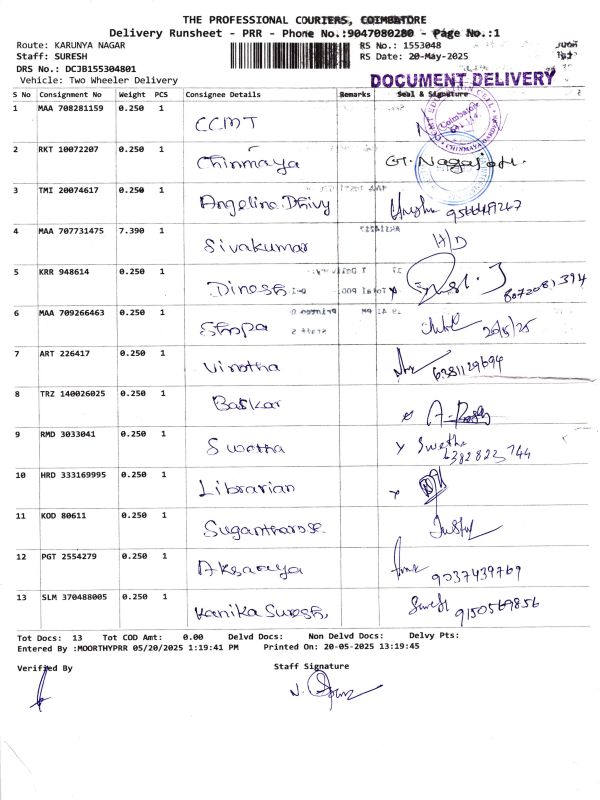 THE PROFESSIONAL COURIERS, COIMBATORE
Delivery Runsheet - PRR - Phone No.:9047080280 - Page No.:1
Route: KARUNYA NAGAR RS No.: 1553048
Staff: SURESH RS Date: 20-May-2025
DRS No.: DCJB155304801
Vehicle: Two Wheeler Delivery
DOCUMENT DELIVERY
S No Consignment No Weight PCS Consignee Details Remarks Seal & Signature
1 MAA 708281159 0.250 1 CCMT
2 RKT 10072207 0.250 1 Chinmaya G. Nagaraj
3 TMI 20074617 0.250 1 Angeline Dhivy
4 MAA 707731475 7.390 1 Sivakumar H/D
5 KRR 948614 0.250 1 Dinesh 8072081394
6 MAA 709266463 0.250 1 20/5/25
7 ART 226417 0.250 1 Vinotha 6381129694
8 TRZ 140026025 0.250 1 Baskar
9 RMD 3033041 0.250 1 Swetha x Swetha
10 HRD 333169995 0.250 1 Librarian x
11 KOD 80611 0.250 1
12 PGT 2554279 0.250 1 Aksaraya 9037439769
13 SLM 370488005 0.250 1 Kanika Suresh, Suresh 9150569856
Tot Docs: 13 Tot COD Amt: 0.00 Delvd Docs: Non Delvd Docs: Delvy Pts:
Entered By :MOORTHYPRR 05/20/2025 1:19:41 PM Printed On: 20-05-2025 13:19:45
Verified By Staff Signature